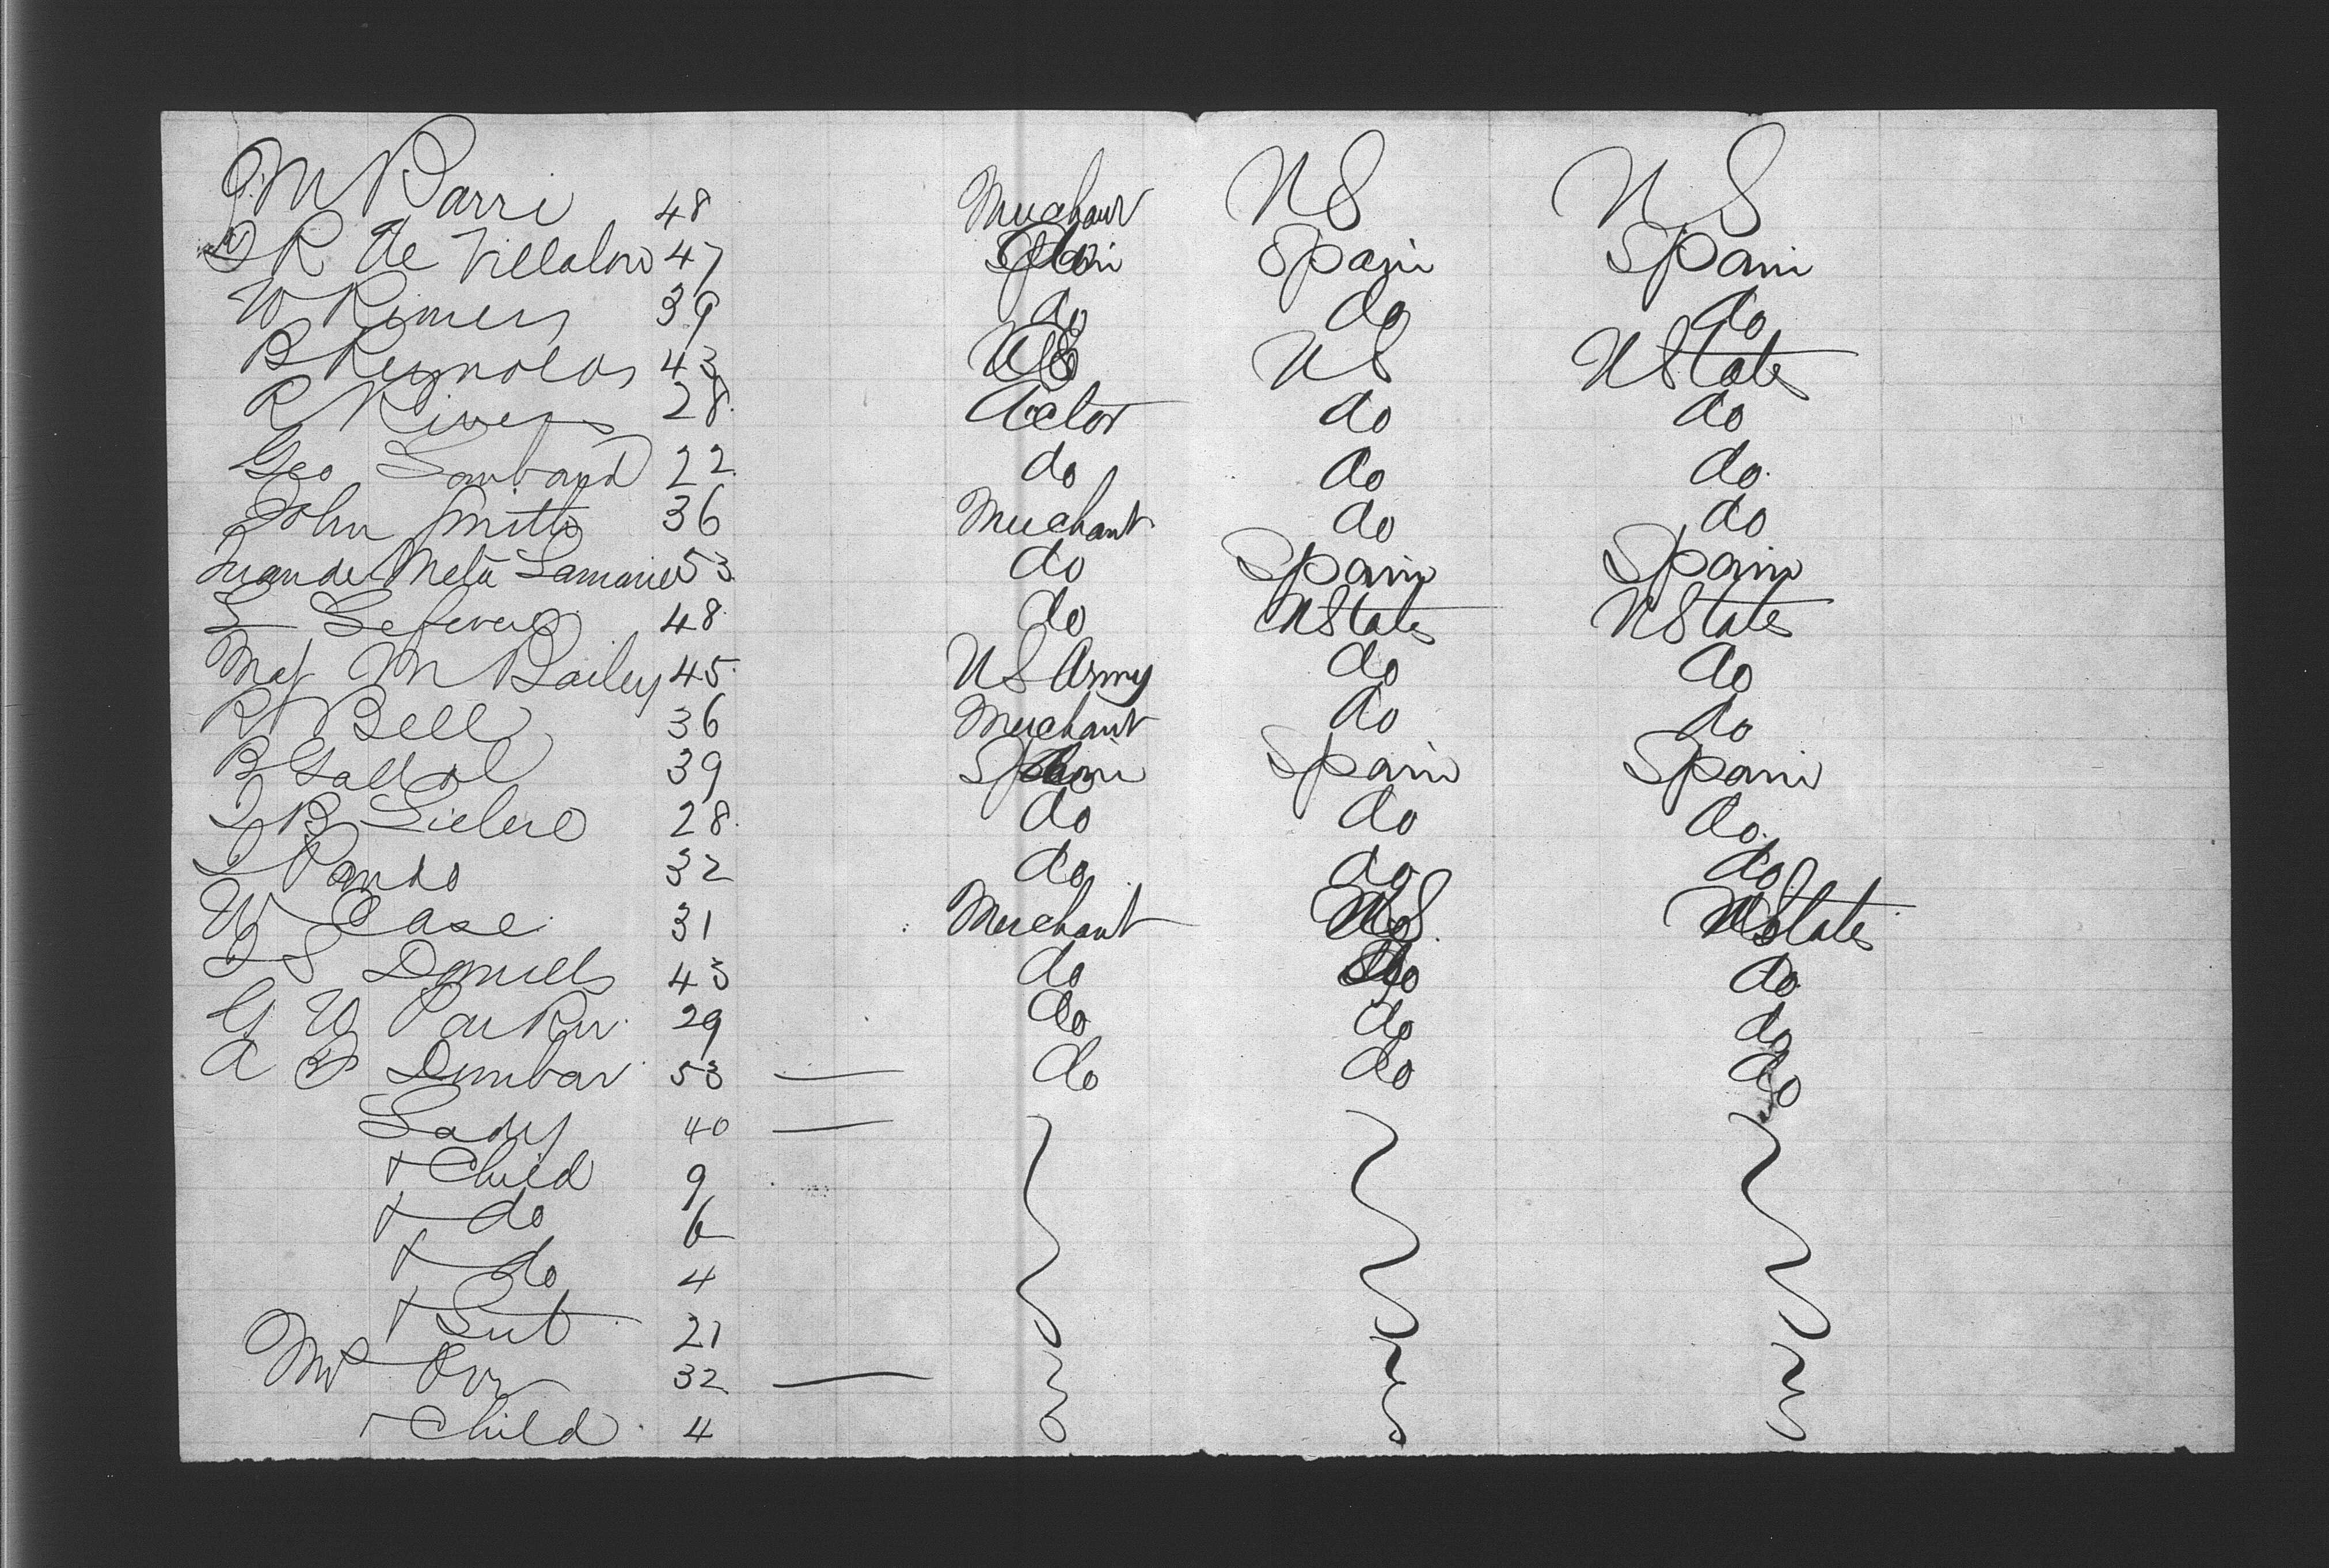 J. M Barri 48 Merchant U S U S
R de Villalon 47 Spain Spain
W Rimers 39 do do do
B Reynolds 43 U S U States
R Rivers 28 Actor do do
Geo Lombard 22 do do do
John Smith 36 Merchant do do
Juan de Mata 53 do Spain Spain
L Lefevre 48 do U States U States
Maj M Bailey 45 US Army do do
R Bell 36 Merchant do do
B 39 Spain Spain
J B 28 do do do
J Pando 32 do do do
W Case 31 Merchant U S U States
J S Daniels 43 do do do
G W Parker 29 do do do
A Dunbar 53 — do do do
Lady 40 —
+ Child 9
+ do 6
+ do 4
+ Sert 21
Mrs Orr 32 —
+ Child 4